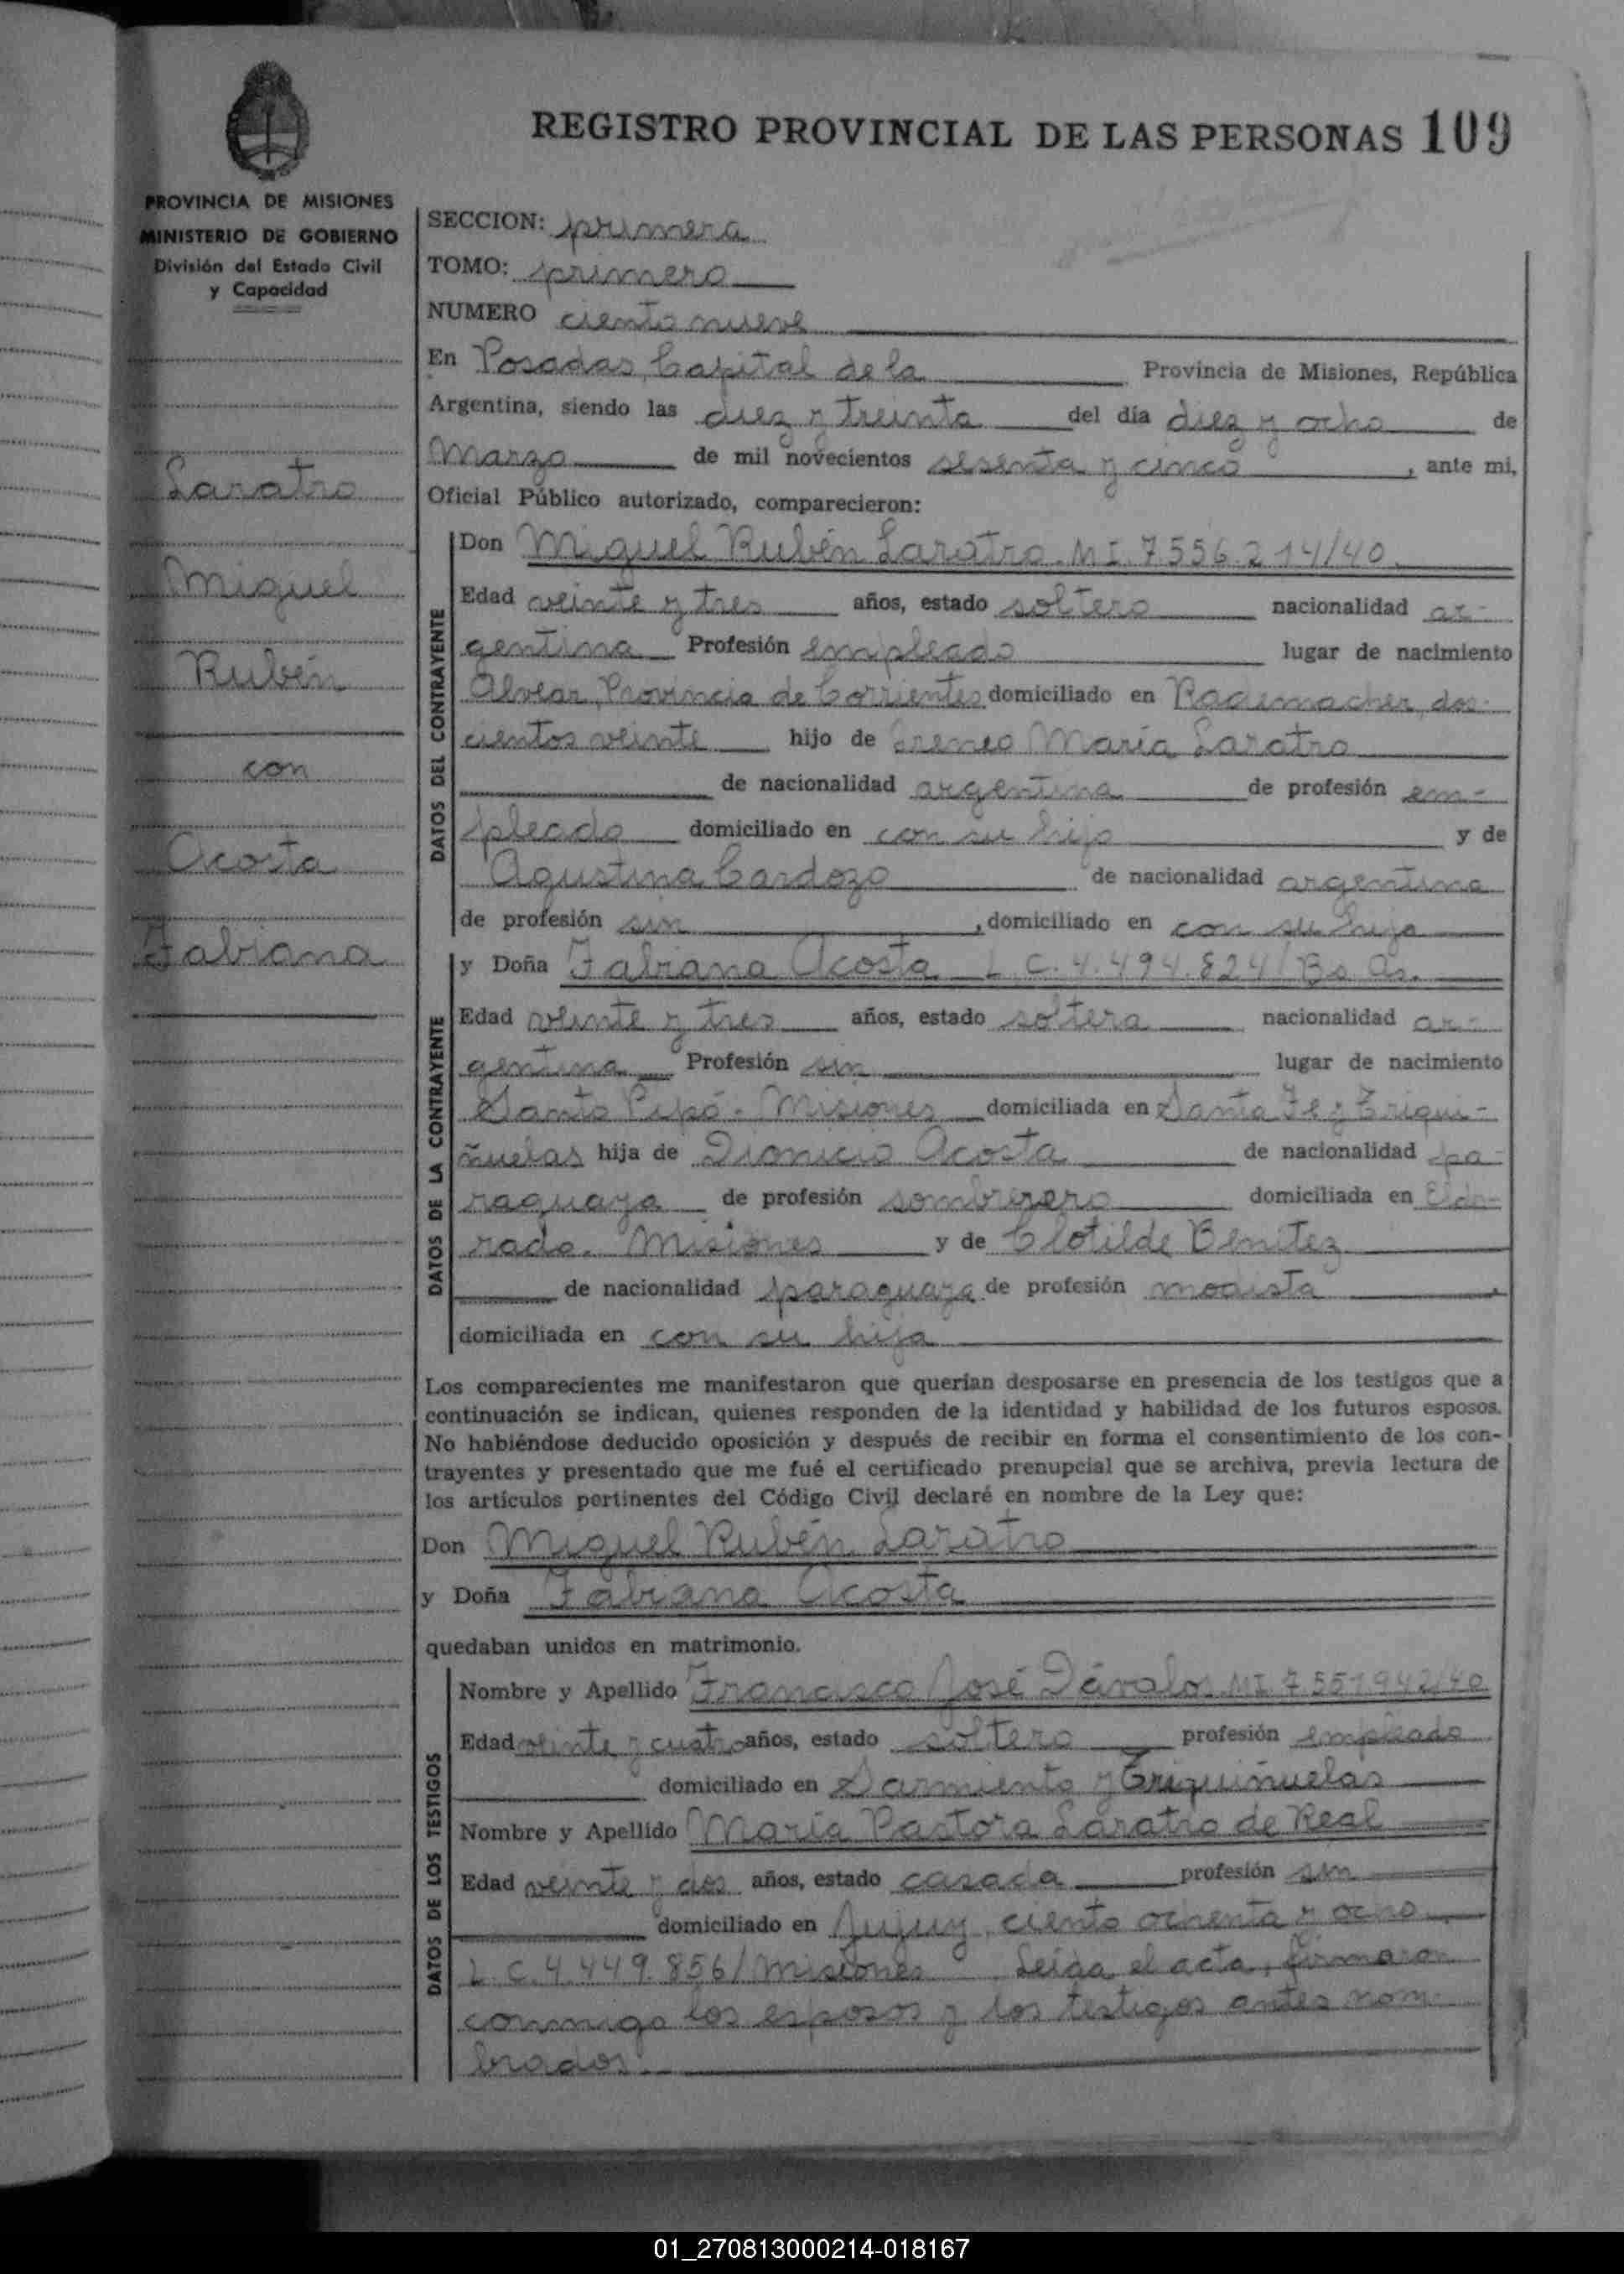 REGISTRO PROVINCIAL DE LAS PERSONAS 109
PROVINCIA DE MISIONES
MINISTERIO DE GOBIERNO
División del Estado Civil
y Capacidad
Laratro
Miguel
Rubén
con
Acosta
Fabiana
SECCION: primera
TOMO: primero
NUMERO ciento nueve
En Posadas, Capital de la Provincia de Misiones, República
Argentina, siendo las diez y treinta del día diez y ocho de
Marzo de mil novecientos sesenta y cinco, ante mi,
Oficial Público autorizado, comparecieron:
DATOS DEL CONTRAYENTE
Don Miguel Rubén Laratro. M I. 7.556.214/40
Edad veinte y tres años, estado soltero nacionalidad ar-
gentina Profesión empleado lugar de nacimiento
Alvear, Provincia de Corrientes domiciliado en Rademacher, dos-
cientos veinte hijo de Ireneo María Laratro
de nacionalidad argentina de profesión em-
pleado domiciliado en con su hijo y de
Agustina Cardozo de nacionalidad argentina
de profesión sin, domiciliado en con su hijo
DATOS DE LA CONTRAYENTE
y Doña Fabiana Acosta L. C. 4.494.824/Bs. As.
Edad veinte y tres años, estado soltera nacionalidad ar-
gentina Profesión sin lugar de nacimiento
Santo Pipó - Misiones domiciliada en Santa Fe y Triqui-
ñuelas hija de Dionicio Acosta de nacionalidad pa-
raguaya de profesión sombrerero domiciliada en Eldo-
rado. Misiones y de Clotilde Benitez
de nacionalidad paraguaya de profesión modista,
domiciliada en con su hija
Los comparecientes me manifestaron que querían desposarse en presencia de los testigos que a
continuación se indican, quienes responden de la identidad y habilidad de los futuros esposos.
No habiéndose deducido oposición y después de recibir en forma el consentimiento de los con-
trayentes y presentado que me fué el certificado prenupcial que se archiva, previa lectura de
los artículos pertinentes del Código Civil declaré en nombre de la Ley que:
Don Miguel Rubén Laratro
y Doña Fabiana Acosta
quedaban unidos en matrimonio.
DATOS DE LOS TESTIGOS
Nombre y Apellido Francisco José Dávalos. MI 7.551942/40
Edad veinte y cuatro años, estado soltero profesión empleado
domiciliado en Sarmiento y Triquiñuelas
Nombre y Apellido María Pastora Laratro de Real
Edad veinte y dos años, estado casada profesión sin
domiciliado en Jujuy, ciento ochenta y ocho
L. C. 4.449.856/Misiones. Leída el acta, firmaron
conmigo los esposos y los testigos antes nom-
brados.
01_270813000214-018167